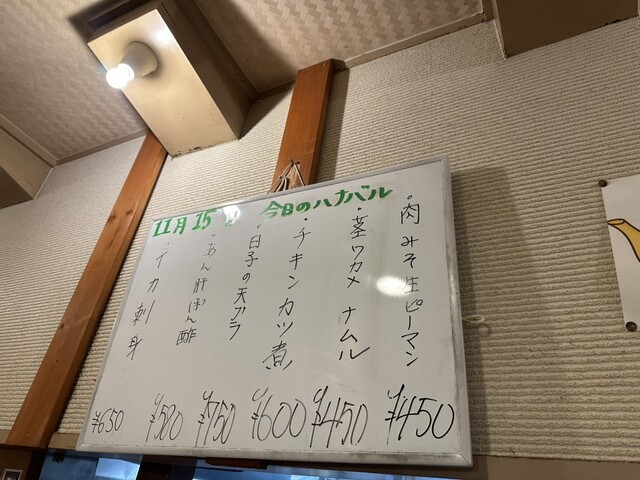 11月15日 今日のハナバル
・肉みそ生ピーマン ¥450
・茎ワカメ ナムル ¥450
・チキンカツ煮 ¥600
・白子の天プラ ¥750
・あん肝ぽん酢 ¥580
・イカ刺身 ¥650